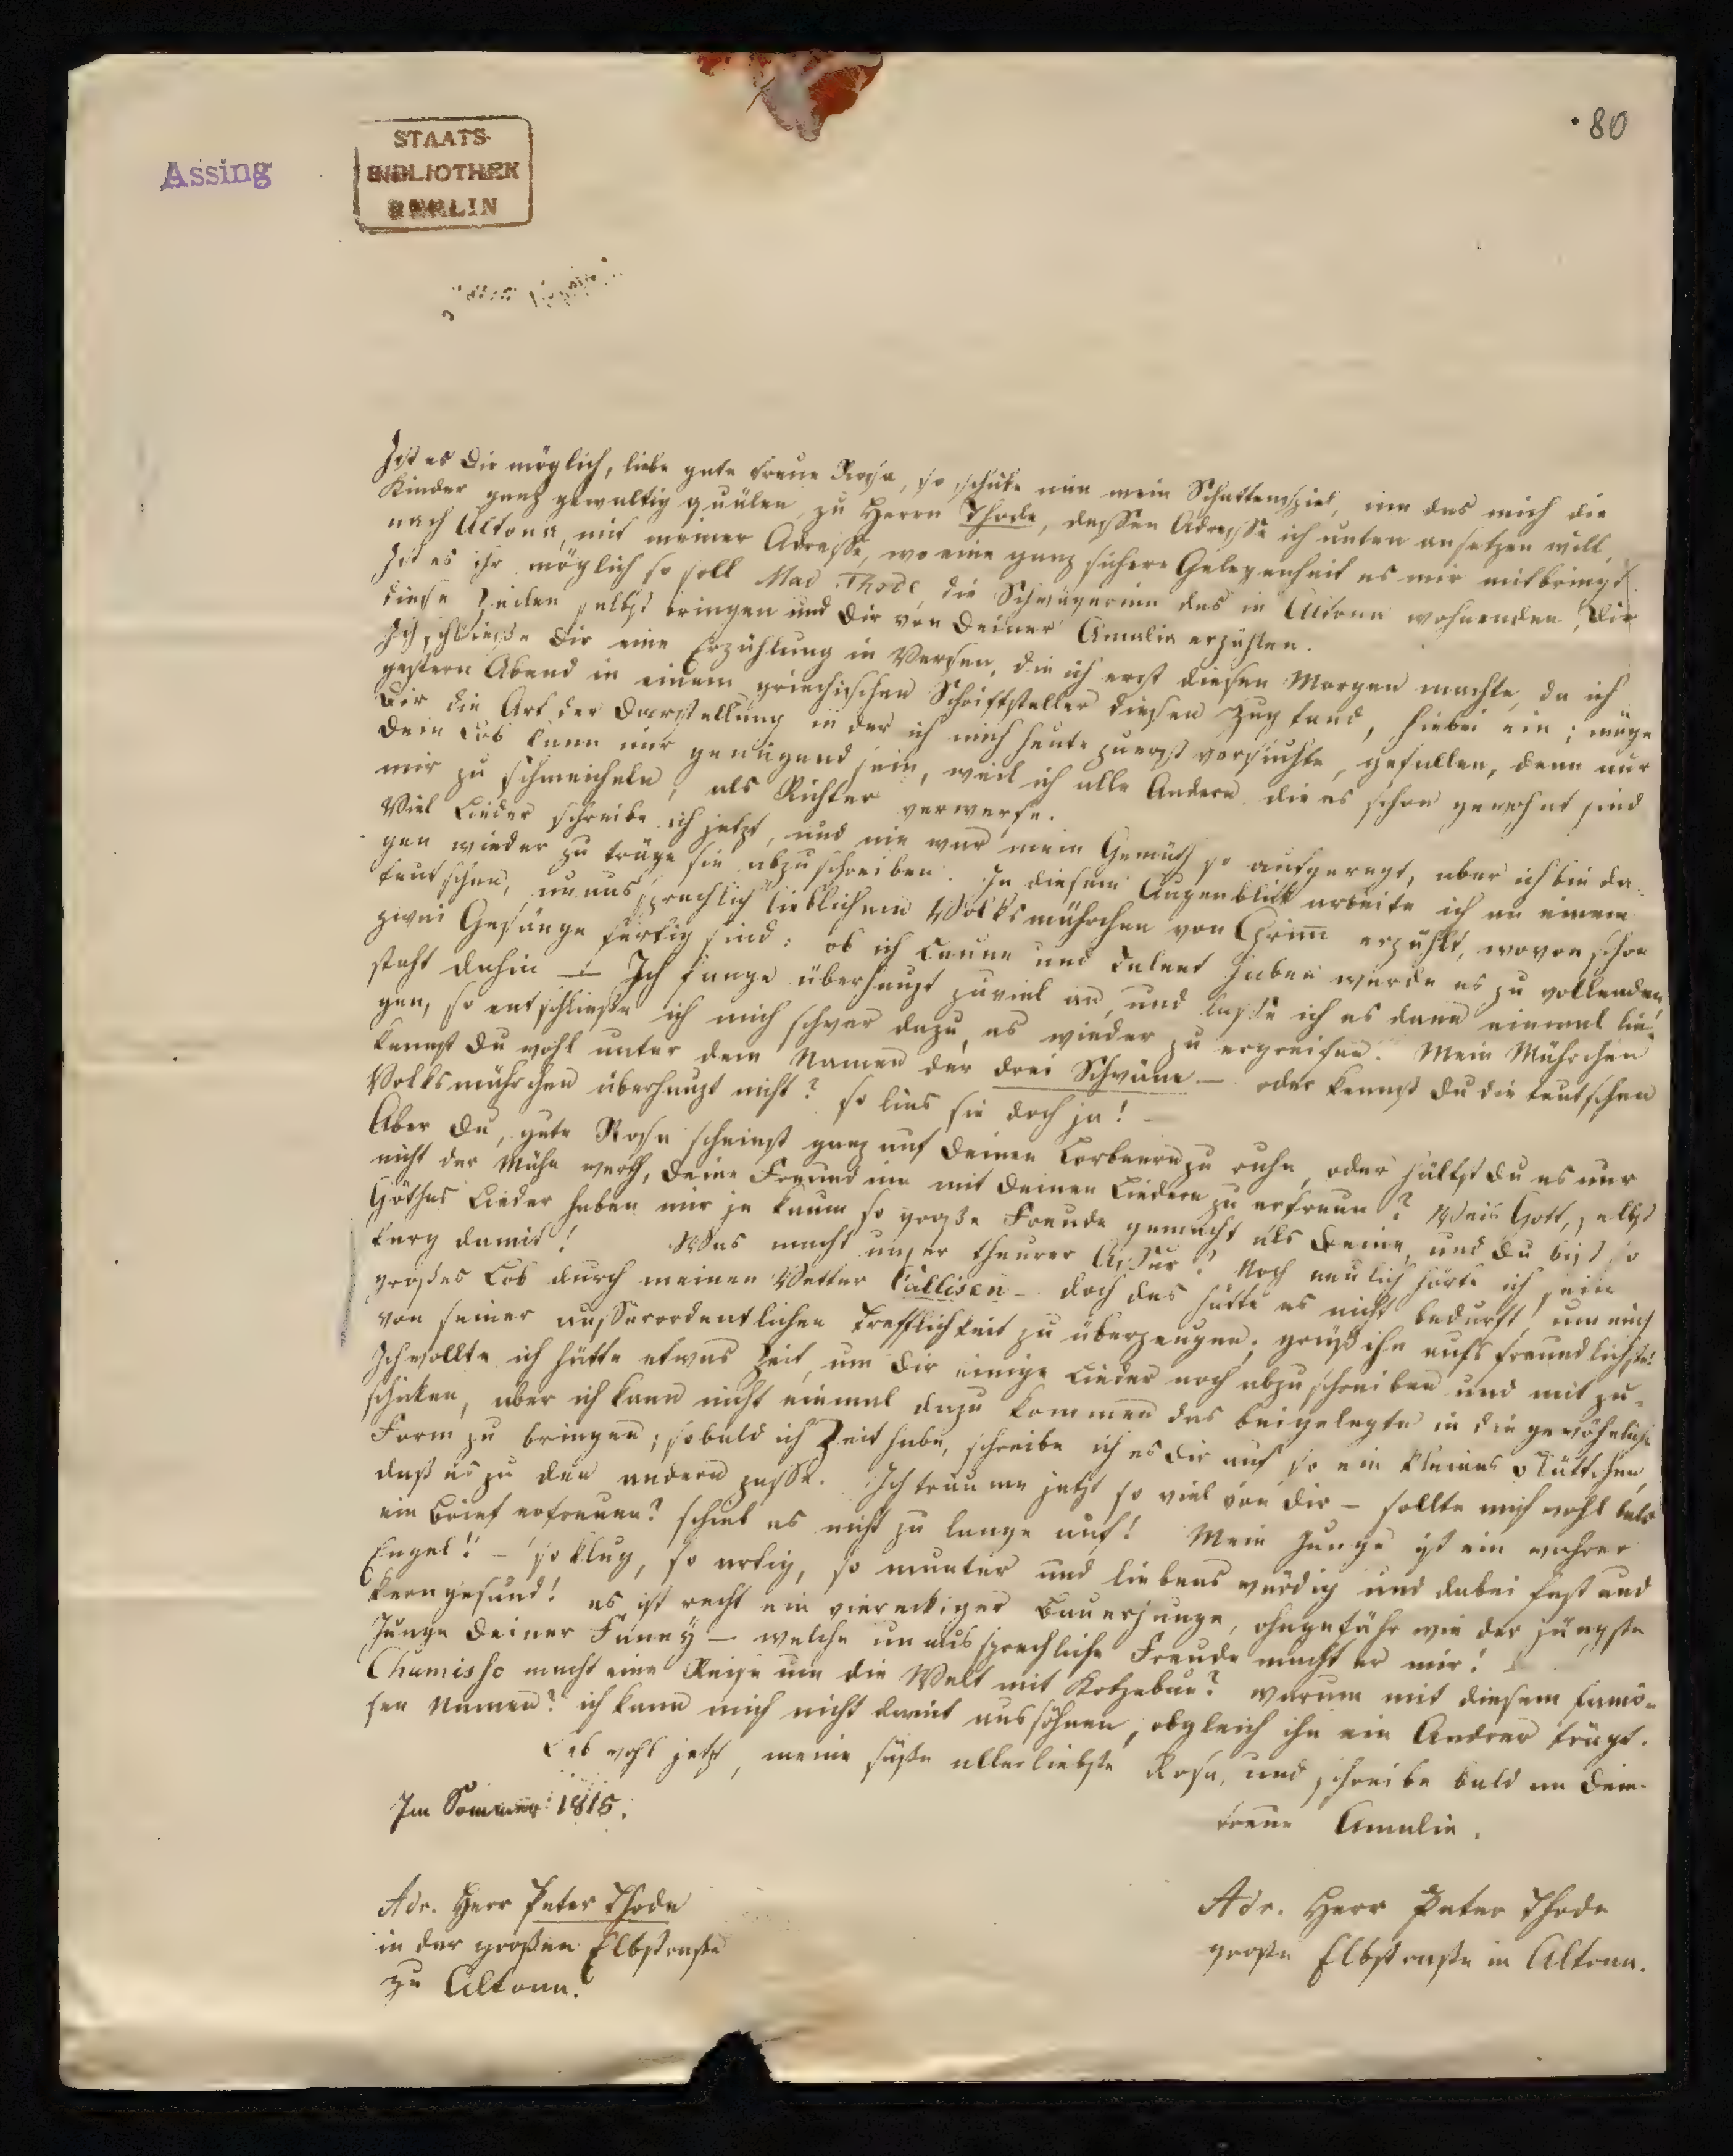 80
Assing
STAATS-
BIBLIOTHEK
BERLIN
Ist es dir möglich, liebe gute treue Rosa, so schicke mir mein Schattenspiel, um das mich die
Kinder ganz gewaltig quälen, zu Herrn Thode, dessen Adresse ich unten ansetzen will,
nach Altona, mit meiner Adresse, wo eine ganz sichere Gelegenheit es mir mitbringt.
Ist es ihr möglich so soll Mad. Thode, die Schwägerinn des in Altona wohnenden, dir
diese Zeilen selbst bringen und dir von deiner Amalia erzählen.
Ich schliesse dir eine Erzählung in Versen, die ich erst diesen Morgen machte, da ich
gestern Abend in einem griechischen Schriftsteller diesen Zug fand, hiebei ein; möge
dir die Art der Darstellung in der ich mich heute zuerst versuchte, gefallen, denn nur
dein Lob kann mir genügend sein, weil ich alle Andern die es schon gewohnt sind
mir zu schmeicheln, als Richter verwerfe.
Viel Lieder schreibe ich jetzt, und nie war mein Gemüth so aufgeregt, aber ich bin da-
gen wieder zu träge sie abzuschreiben. In diesem Augenblick arbeite ich an einem
teutschen, unaussprechlich lieblichem Volksmährchen von Grim̄ erzählt, wovon schon
zwei Gesänge fertig sind: ob ich Laune und Talent haben werde es zu vollenden,
steht dahin – Ich fange überhaupt zuviel an, und lasse ich es dann einmal lie-
gen, so entschliesse ich mich schwer dazu, es wieder zu ergreifen. Mein Mährchen
kennst du wohl unter dem Namen der drei Schwäne – oder kennst du die teutschen
Volksmährchen überhaupt nicht? so lies sie doch ja! –
Aber du, gute Rosa scheinst ganz auf deinen Lorbeern zu ruhn, oder hältst du es nur
nicht der Mühe werth, deine Freundinn mit deinen Liedern zu erfreun? Weis Gott, selbst
Göthes Lieder haben mir je kaum so große Freude gemacht als deine, und du bist so
karg damit! Was macht unser theurer Assur? Noch neulich hörte ich sein
großes Lob durch meinen Vetter Callisen – doch das hätte es nicht bedurft, um mich
von seiner ausserordentlichen Trefflichkeit zu überzeugen; grüß ihn aufs freundlichste!
Ich wollte ich hätte etwas Zeit, um dir einige Lieder noch abzuschreiben und mit zu-
schicken, aber ich kann nicht einmal dazu kommen das beigelegte in die gewöhnliche
Form zu bringen; sobald ich Zeit habe, schreibe ich es dir auf so ein kleines Blättchen,
daß es zu den andern passe. Ich träume jetzt so viel von dir – sollte mich wohl bald
ein Brief erfreuen? schieb es nicht zu lange auf! Mein Junge ist ein wahrer
Engel! – so klug, so artig, so munter und liebenswürdig und dabei fest und
kerngesund! es ist recht ein viereckiger Bauerjunge, ohngefähr wie der jüngste
Junge deiner Fanny – welche unaussprechliche Freude macht er mir!
Chamisso macht eine Reise um die Welt mit Kotzebue? warum mit diesem famö-
sen Namen? ich kann mich nicht damit aussöhnen, obgleich ihn ein Andrer trägt.
Leb wohl jetzt, meine süße allerliebste Rosa, und schreibe bald an dein-
Im Sommer 1815.
treue Amalia.
Adr. Herr Peter Thode
in der großen Elbstraße
zu Altona.
Adr. Herr Peter Thode
große Elbstraße in Altona.